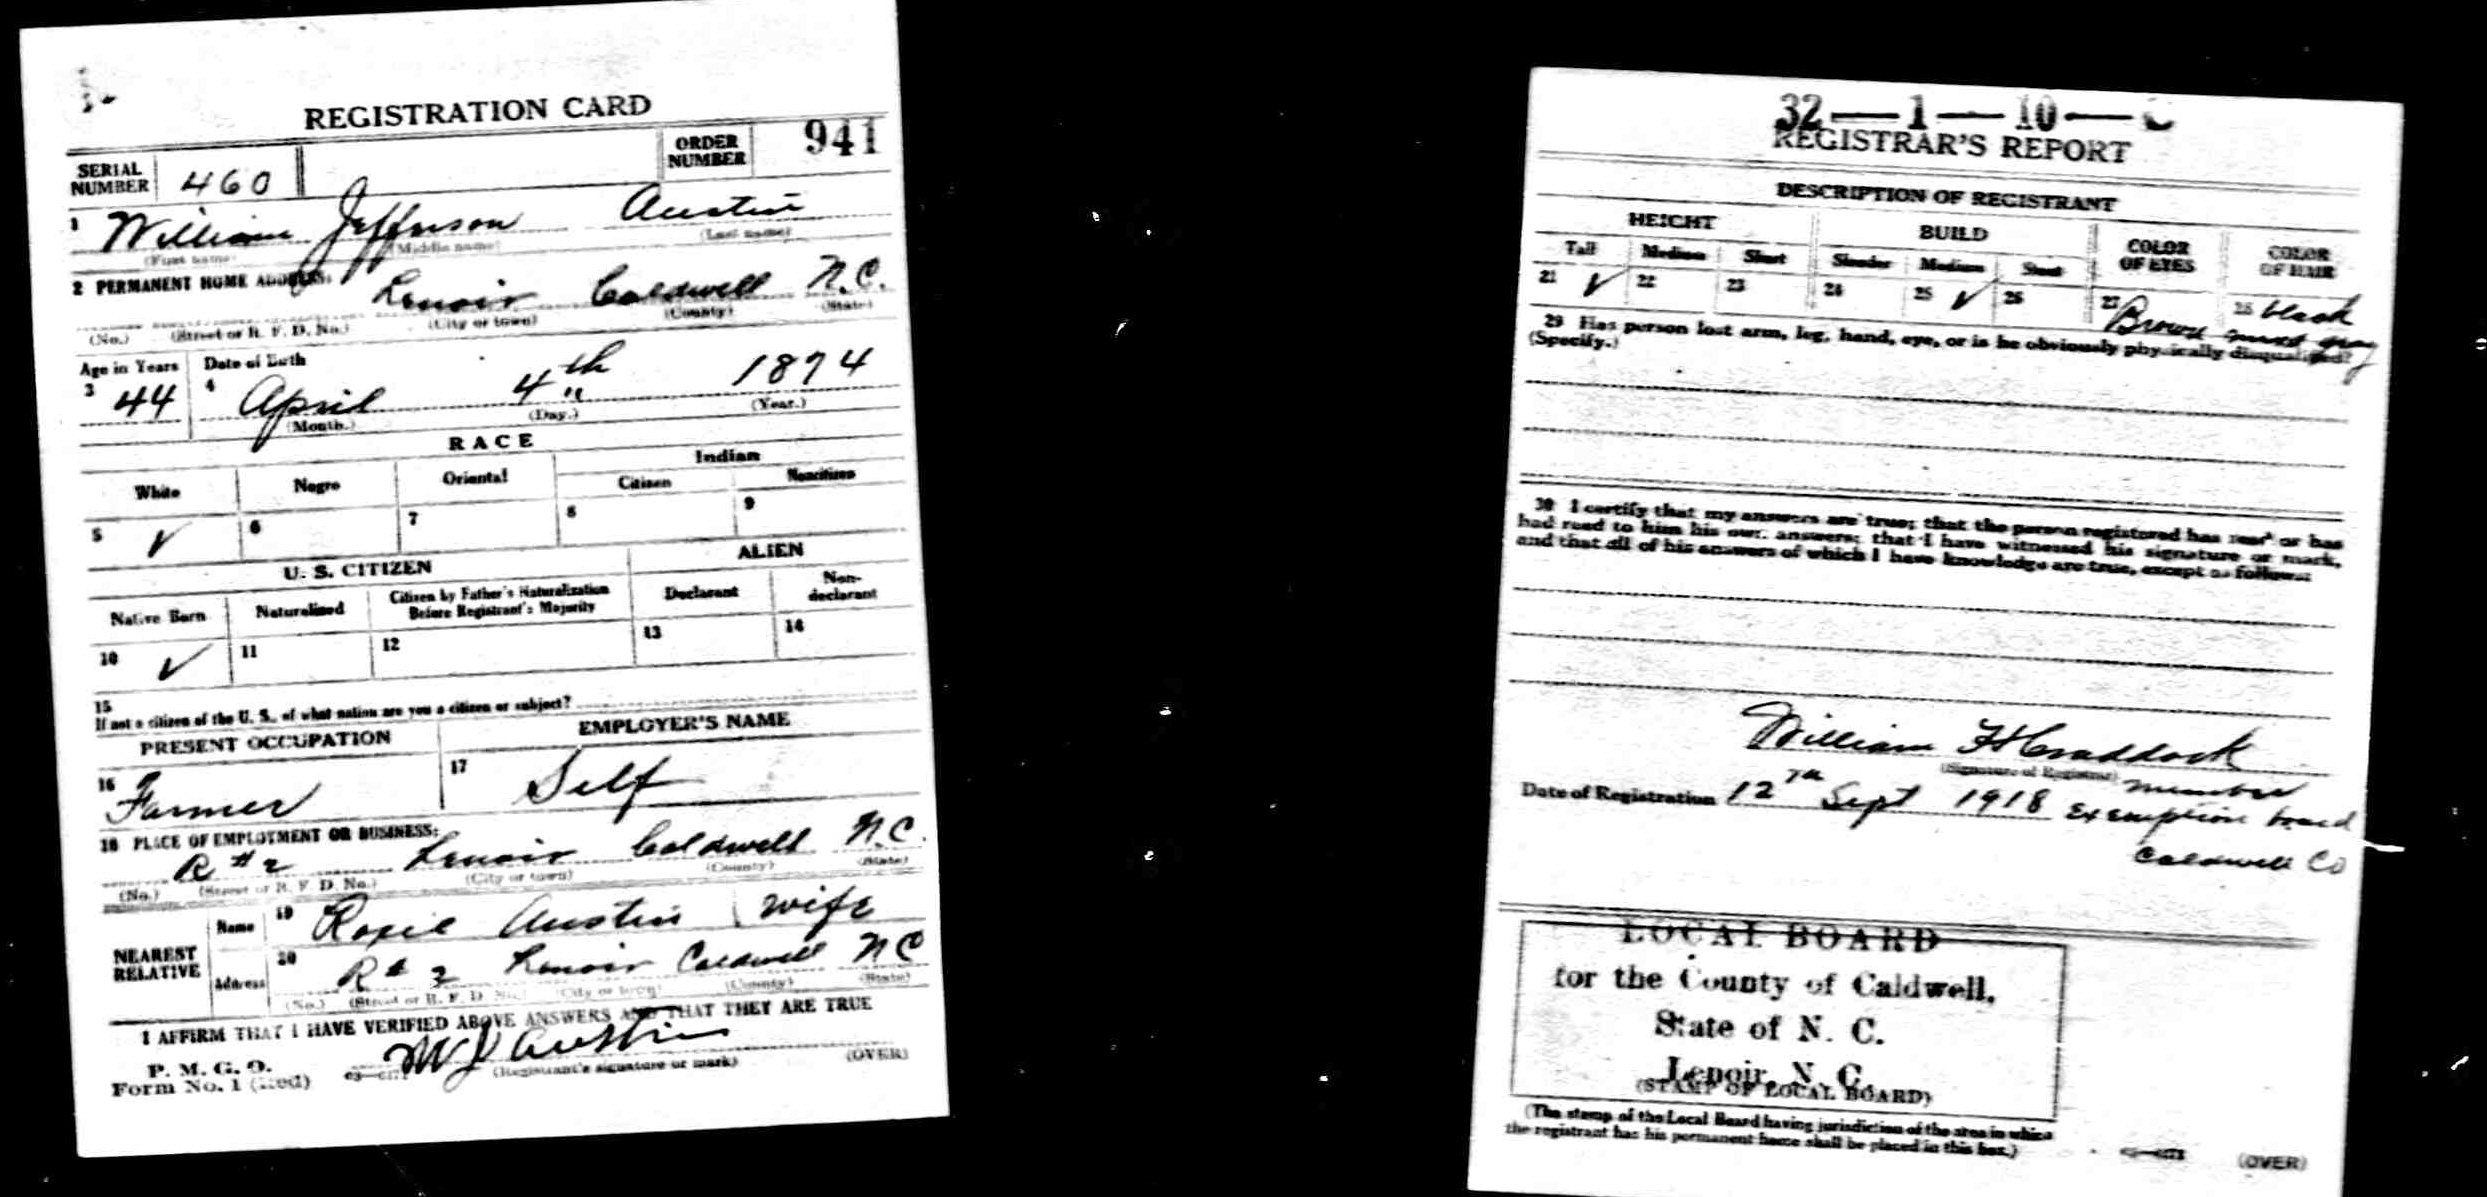 REGISTRATION CARD
SERIAL NUMBER 460 ORDER NUMBER 941
1 William Jefferson Austin
(First name) (Middle name) (Last name)
2 PERMANENT HOME ADDRESS:
Lenoir Caldwell N.C.
(No.) (Street or R. F. D. No.) (City or town) (County) (State)
Age in Years Date of Birth
3 44 4 April 4th 1874
(Month.) (Day.) (Year.)
RACE
White Negro Oriental Indian
Citizen Noncitizen
5 ✓ 6 7 8 9
U. S. CITIZEN ALIEN
Native Born Naturalized Citizen by Father's Naturalization Before Registrant's Majority Declarant Non-declarant
10 ✓ 11 12 13 14
15
If not a citizen of the U. S., of what nation are you a citizen or subject?
PRESENT OCCUPATION EMPLOYER'S NAME
16 Farmer 17 Self
18 PLACE OF EMPLOYMENT OR BUSINESS:
R #2 Lenoir Caldwell N.C.
(No.) (Street or R. F. D. No.) (City or town) (County) (State)
NEAREST RELATIVE
Name 19 Roxie Austin wife
Address 20 R # 2 Lenoir Caldwell NC
(No.) (Street or R. F. D. No.) (City or town) (County) (State)
I AFFIRM THAT I HAVE VERIFIED ABOVE ANSWERS AND THAT THEY ARE TRUE
P. M. G. O.
Form No. 1 (Red) W J Austin
(Registrant's signature or mark) (OVER)
32—1—10—C
REGISTRAR'S REPORT
DESCRIPTION OF REGISTRANT
HEIGHT BUILD COLOR OF EYES COLOR OF HAIR
Tall Medium Short Slender Medium Stout
21 ✓ 22 23 24 25 ✓ 26 27 Brown 28 black
mixed gray
29 Has person lost arm, leg, hand, eye, or is he obviously physically disqualified?
(Specify.)
30 I certify that my answers are true; that the person registered has read or has
had read to him his own answers; that I have witnessed his signature or mark,
and that all of his answers of which I have knowledge are true, except as follows:
William F H Craddock
(Signature of Registrar) member
Date of Registration 12th Sept 1918 Exemption board
Caldwell Co
LOCAL BOARD
for the County of Caldwell,
State of N. C.
Lenoir, N. C.
(STAMP OF LOCAL BOARD)
(The stamp of the Local Board having jurisdiction of the area in which
the registrant has his permanent home shall be placed in this box.)
(OVER)